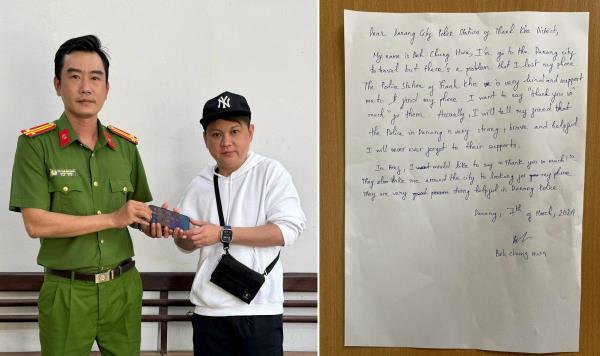 NY
Dear Danang City Police Station of Thanh Khe District,
My name is Beh Chung Hwa, I'm go to the Danang city
to travel but there's a problem that I lost my phone.
The Police Station of Thanh Khe is very kind and support
me to find my phone. I want to say "thank you so
much" go them. Actually, I will tell my friend that
the Police in Danang is very strong, brave and helpful
I will never ever forget to their supports.
I would like to say "Thank you so much",
They take me around the city to looking for my phone
They are very strong helpful in Danang Police.
Danang, 7th of March, 2024
Beh chung hwa